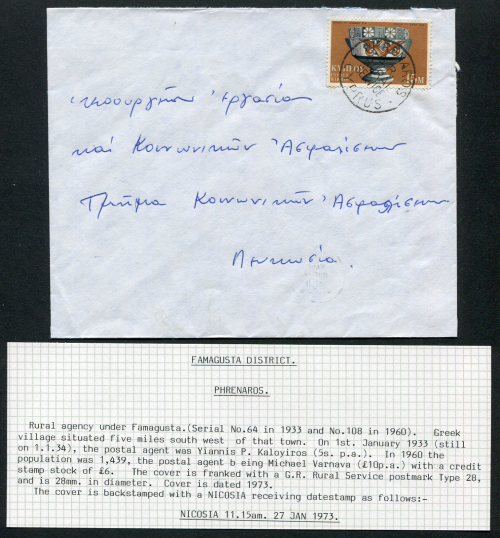 ΚΥΠΡΟΣ
15M
Ὑπουργεῖον Ἐργασίας
καί Κοινωνικῶν Ἀσφαλίσεων
Τμῆμα Κοινωνικῶν Ἀσφαλίσεων
Λευκωσία.
FAMAGUSTA DISTRICT.
PHRENAROS.
Rural agency under Famagusta.(Serial No.64 in 1933 and No.108 in 1960). Greek
village situated five miles south west of that town. On 1st. January 1933 (still
on 1.1.34), the postal agent was Yiannis P. Kaloyiros (5s. p.a.). In 1960 the
population was 1,439, the postal agent b eing Michael Varnava (£10p.a.) with a credit
stamp stock of £6. The cover is franked with a G.R. Rural Service postmark Type 28,
and is 28mm. in diameter. Cover is dated 1973.
The cover is backstamped with a NICOSIA receiving datestamp as follows:-
NICOSIA 11.15am. 27 JAN 1973.